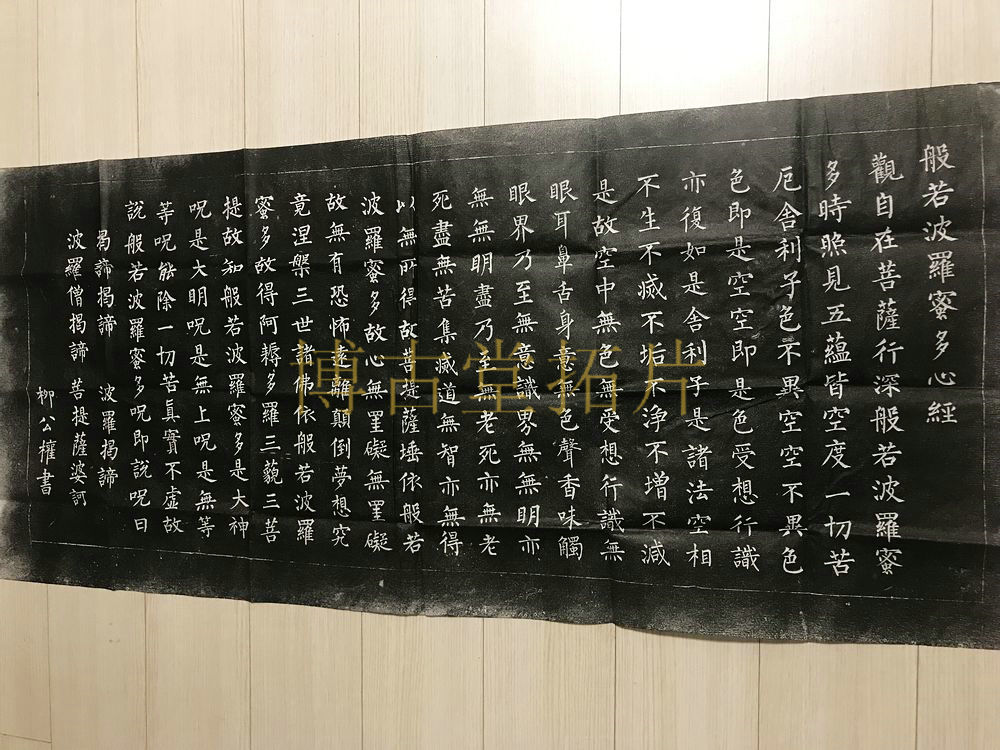 般若波羅蜜多心經
觀自在菩薩行深般若波羅蜜
多時照見五蘊皆空度一切苦
厄舍利子色不異空空不異色
色即是空空即是色受想行識
亦復如是舍利子是諸法空相
不生不滅不垢不淨不增不減
是故空中無色無受想行識無
眼耳鼻舌身意無色聲香味觸
眼界乃至無意識界無無明亦
無無明盡乃至無老死亦無老
死盡無苦集滅道無智亦無得
以無所得故菩提薩埵依般若
波羅蜜多故心無罣礙無罣礙
故無有恐怖遠離顛倒夢想究
竟涅槃三世諸佛依般若波羅
蜜多故得阿耨多羅三藐三菩
提故知般若波羅蜜多是大神
呪是大明呪是無上呪是無等
等呪能除一切苦真實不虛故
說般若波羅蜜多呪即說呪曰
揭諦揭諦 波羅揭諦
波羅僧揭諦 菩提薩婆訶
柳公權書
博古堂拓片